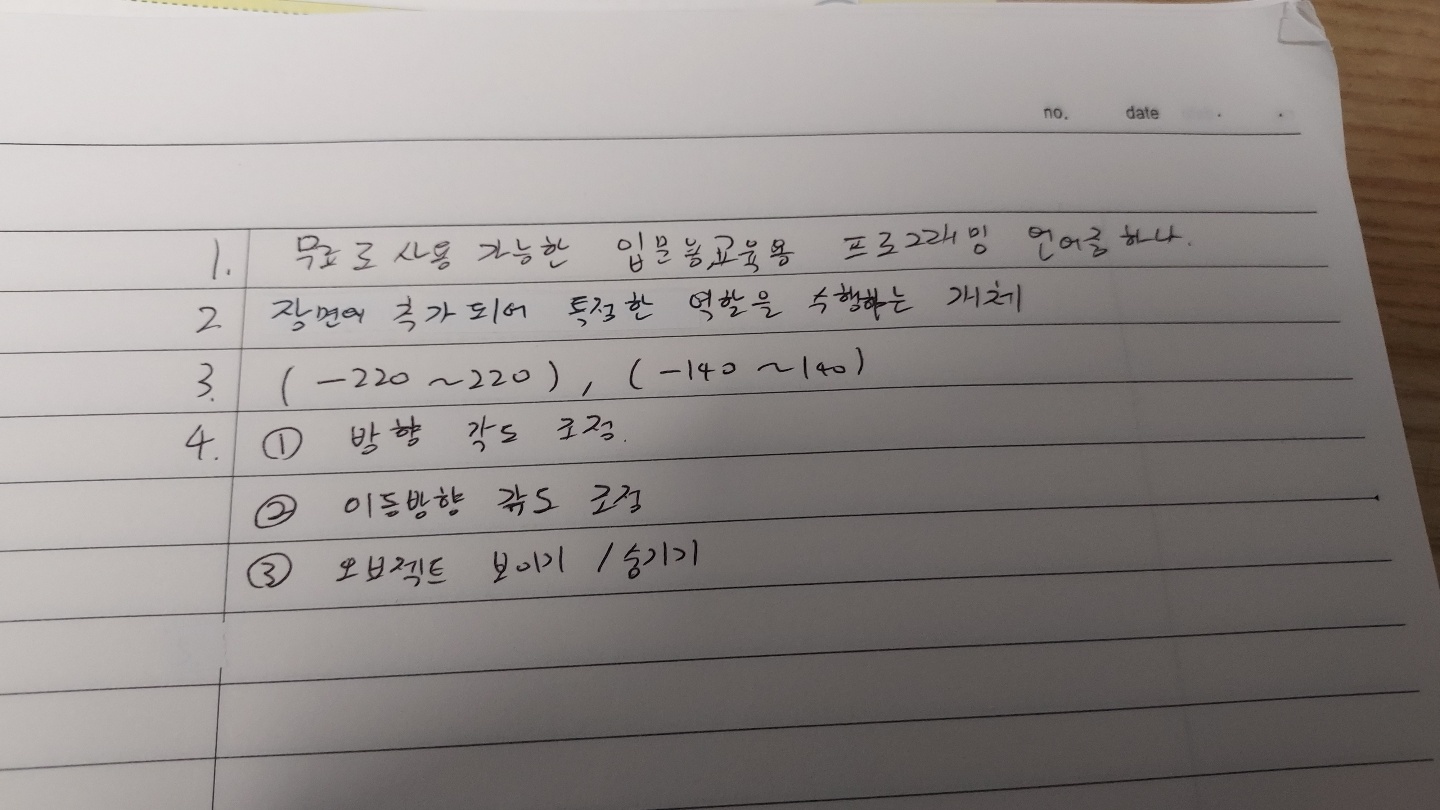 no. date . .
1. 무료로 사용 가능한 입문용교육용 프로그래밍 언어중 하나.
2 장면에 추가되어 특정한 역할을 수행하는 개체
3. (-220~220), (-140~140)
4. ① 방향 각도 조정.
② 이동방향 각도 조정
③ 오브젝트 보이기 / 숨기기